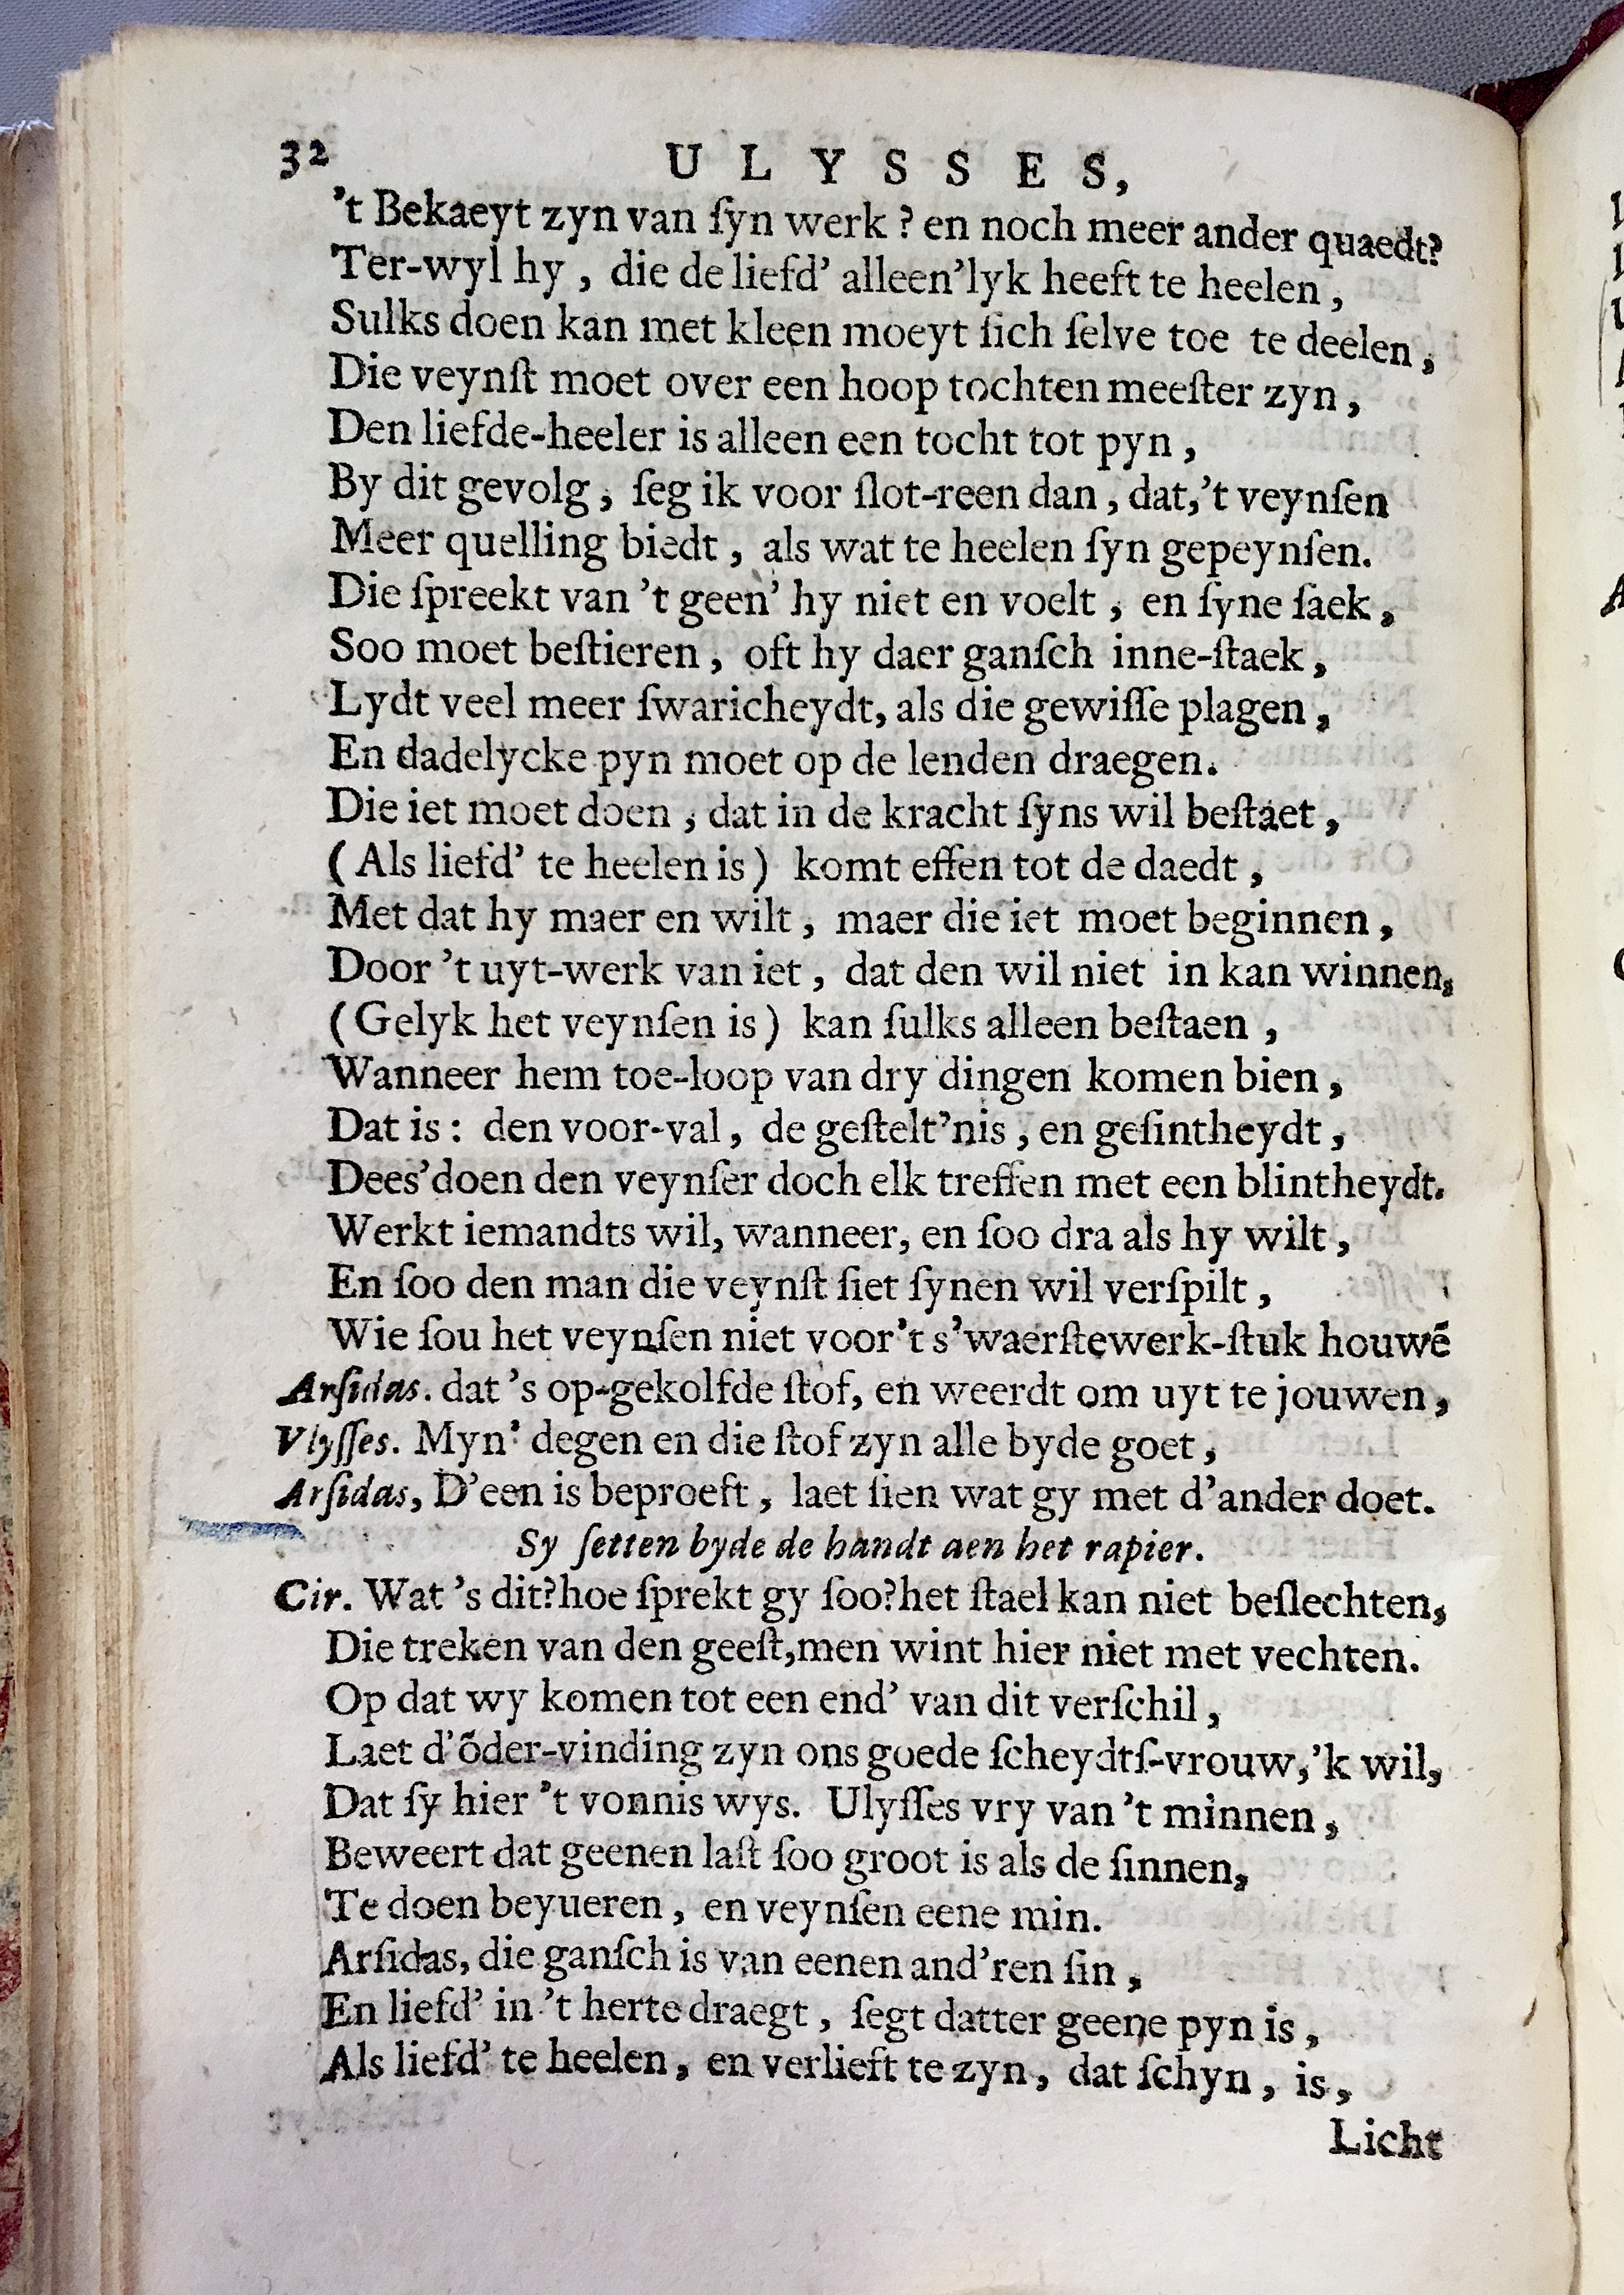 32 ULYSSES,
't Bekaeyt zyn van ſyn werk ? en noch meer ander quaedt?
Ter-wyl hy , die de liefd' alleen'lyk heeft te heelen ,
Sulks doen kan met kleen moeyt ſich ſelve toe te deelen ,
Die veynſt moet over een hoop tochten meeſter zyn ,
Den liefde-heeler is alleen een tocht tot pyn ,
By dit gevolg , ſeg ik voor ſlot-reen dan , dat,'t veynſen
Meer quelling biedt , als wat te heelen ſyn gepeynſen.
Die ſpreekt van 't geen' hy niet en voelt , en ſyne ſaek ,
Soo moet beſtieren , oft hy daer ganſch inne-ſtaek ,
Lydt veel meer ſwaricheydt, als die gewiſſe plagen ,
En dadelycke pyn moet op de lenden draegen.
Die iet moet doen , dat in de kracht ſyns wil beſtaet ,
( Als liefd' te heelen is ) komt effen tot de daedt ,
Met dat hy maer en wilt , maer die iet moet beginnen ,
Door 't uyt-werk van iet , dat den wil niet in kan winnen,
( Gelyk het veynſen is ) kan ſulks alleen beſtaen ,
Wanneer hem toe-loop van dry dingen komen bien ,
Dat is : den voor-val , de geſtelt'nis , en geſintheydt ,
Dees'doen den veynſer doch elk treffen met een blintheydt.
Werkt iemandts wil, wanneer, en ſoo dra als hy wilt ,
En ſoo den man die veynſt ſiet ſynen wil verſpilt ,
Wie ſou het veynſen niet voor't s'waerſtewerk-ſtuk houwẽ
Arſidas. dat 's op-gekolfde ſtof, en weerdt om uyt te jouwen ,
Vlyſſes. Myn' degen en die ſtof zyn alle byde goet ,
Arſidas, D'een is beproeft , laet ſien wat gy met d'ander doet.
Sy ſetten byde de handt aen het rapier.
Cir. Wat 's dit?hoe ſprekt gy ſoo?het ſtael kan niet beſlechten,
Die treken van den geeſt,men wint hier niet met vechten.
Op dat wy komen tot een end' van dit verſchil ,
Laet d'õder-vinding zyn ons goede ſcheydtſ-vrouw,'k wil,
Dat ſy hier 't vonnis wys. Ulyſſes vry van 't minnen ,
Beweert dat geenen laſt ſoo groot is als de ſinnen,
Te doen beyueren , en veynſen eene min.
Arſidas, die ganſch is van eenen and'ren ſin ,
En liefd' in 't herte draegt , ſegt datter geene pyn is ,
Als liefd' te heelen , en verlieft te zyn , dat ſchyn , is ,
Licht